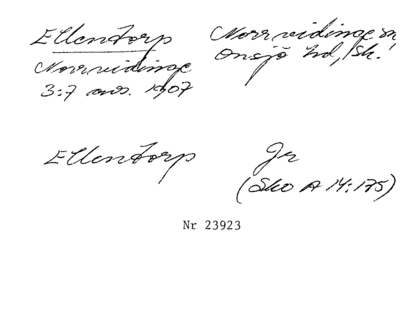 Ellentorp Norrvidinge sn
Norrvidinge Onsjö hd, Sk.
3:7 avs. 1907
Ellentorp Jr
(Sko A 14:175)
Nr 23923